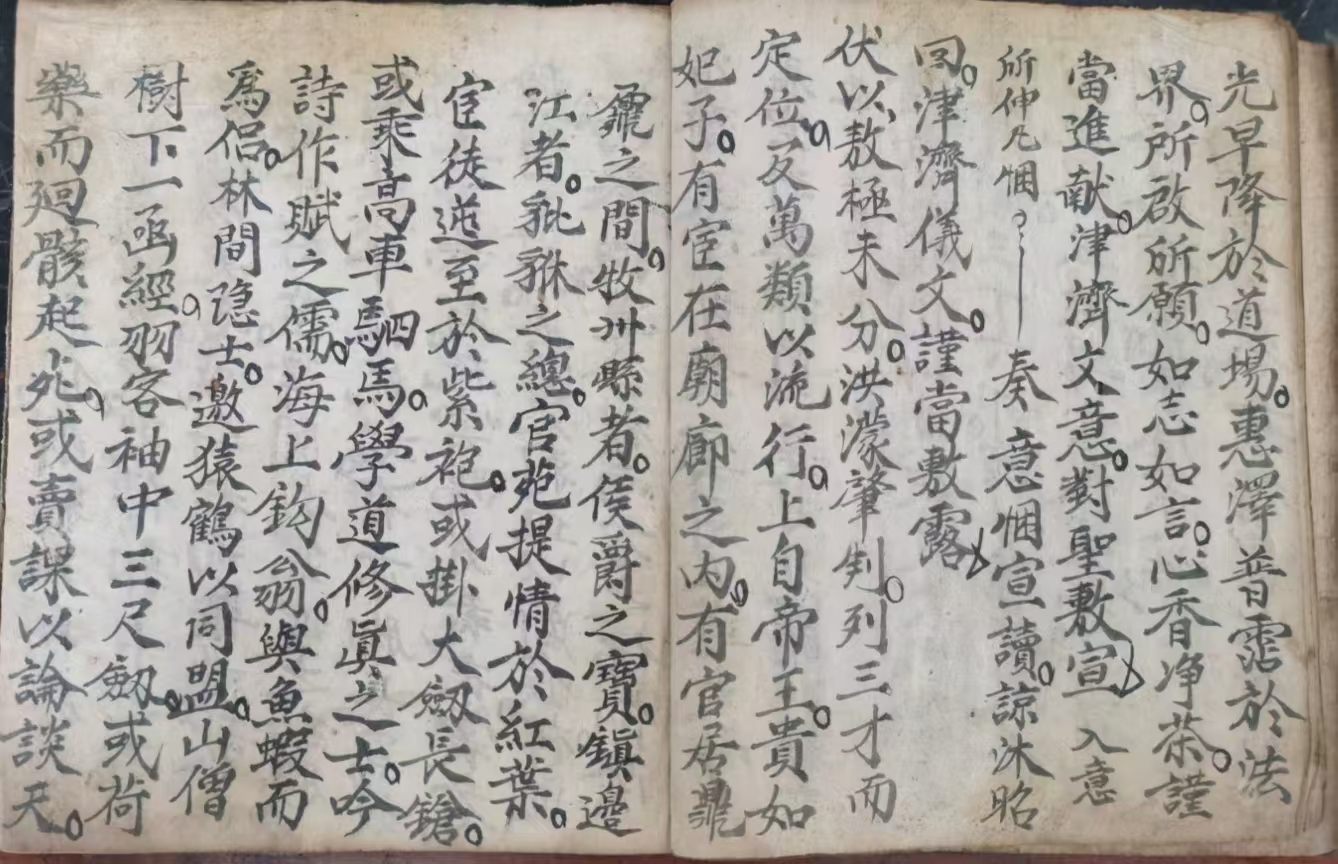 光早降於道場。惠澤普霑於法
界。所啟所願。如志如言。心香净茶。謹
當進献。津濟文意。對聖敷宣 入意
所伸凡悃 奏 意悃宣讀。諒沐昭
回。津濟儀文。謹當敷露
伏以敖極未分。洪濛肇判。列三才而
定位。叐萬類以流行。上自帝王。貴如
妃子。有宦在廟廊之内。有官居鼎
鼐之間。牧州縣者。侯爵之寶。鎮邊
江者。豼貅之總。官苑提情於紅葉。
宦徒遊至於紫袍。或掛大劔長鎗。
或乘高車駟馬。學道修眞之士。吟
詩作賦之儒。海上釣翁。與魚蝦而
爲侣。林間隐士。邀猿鶴以同盟。山僧
樹下一函經。羽客袖中三尺劔。或荷
藥而廻骸起死。或賣課以論談天。